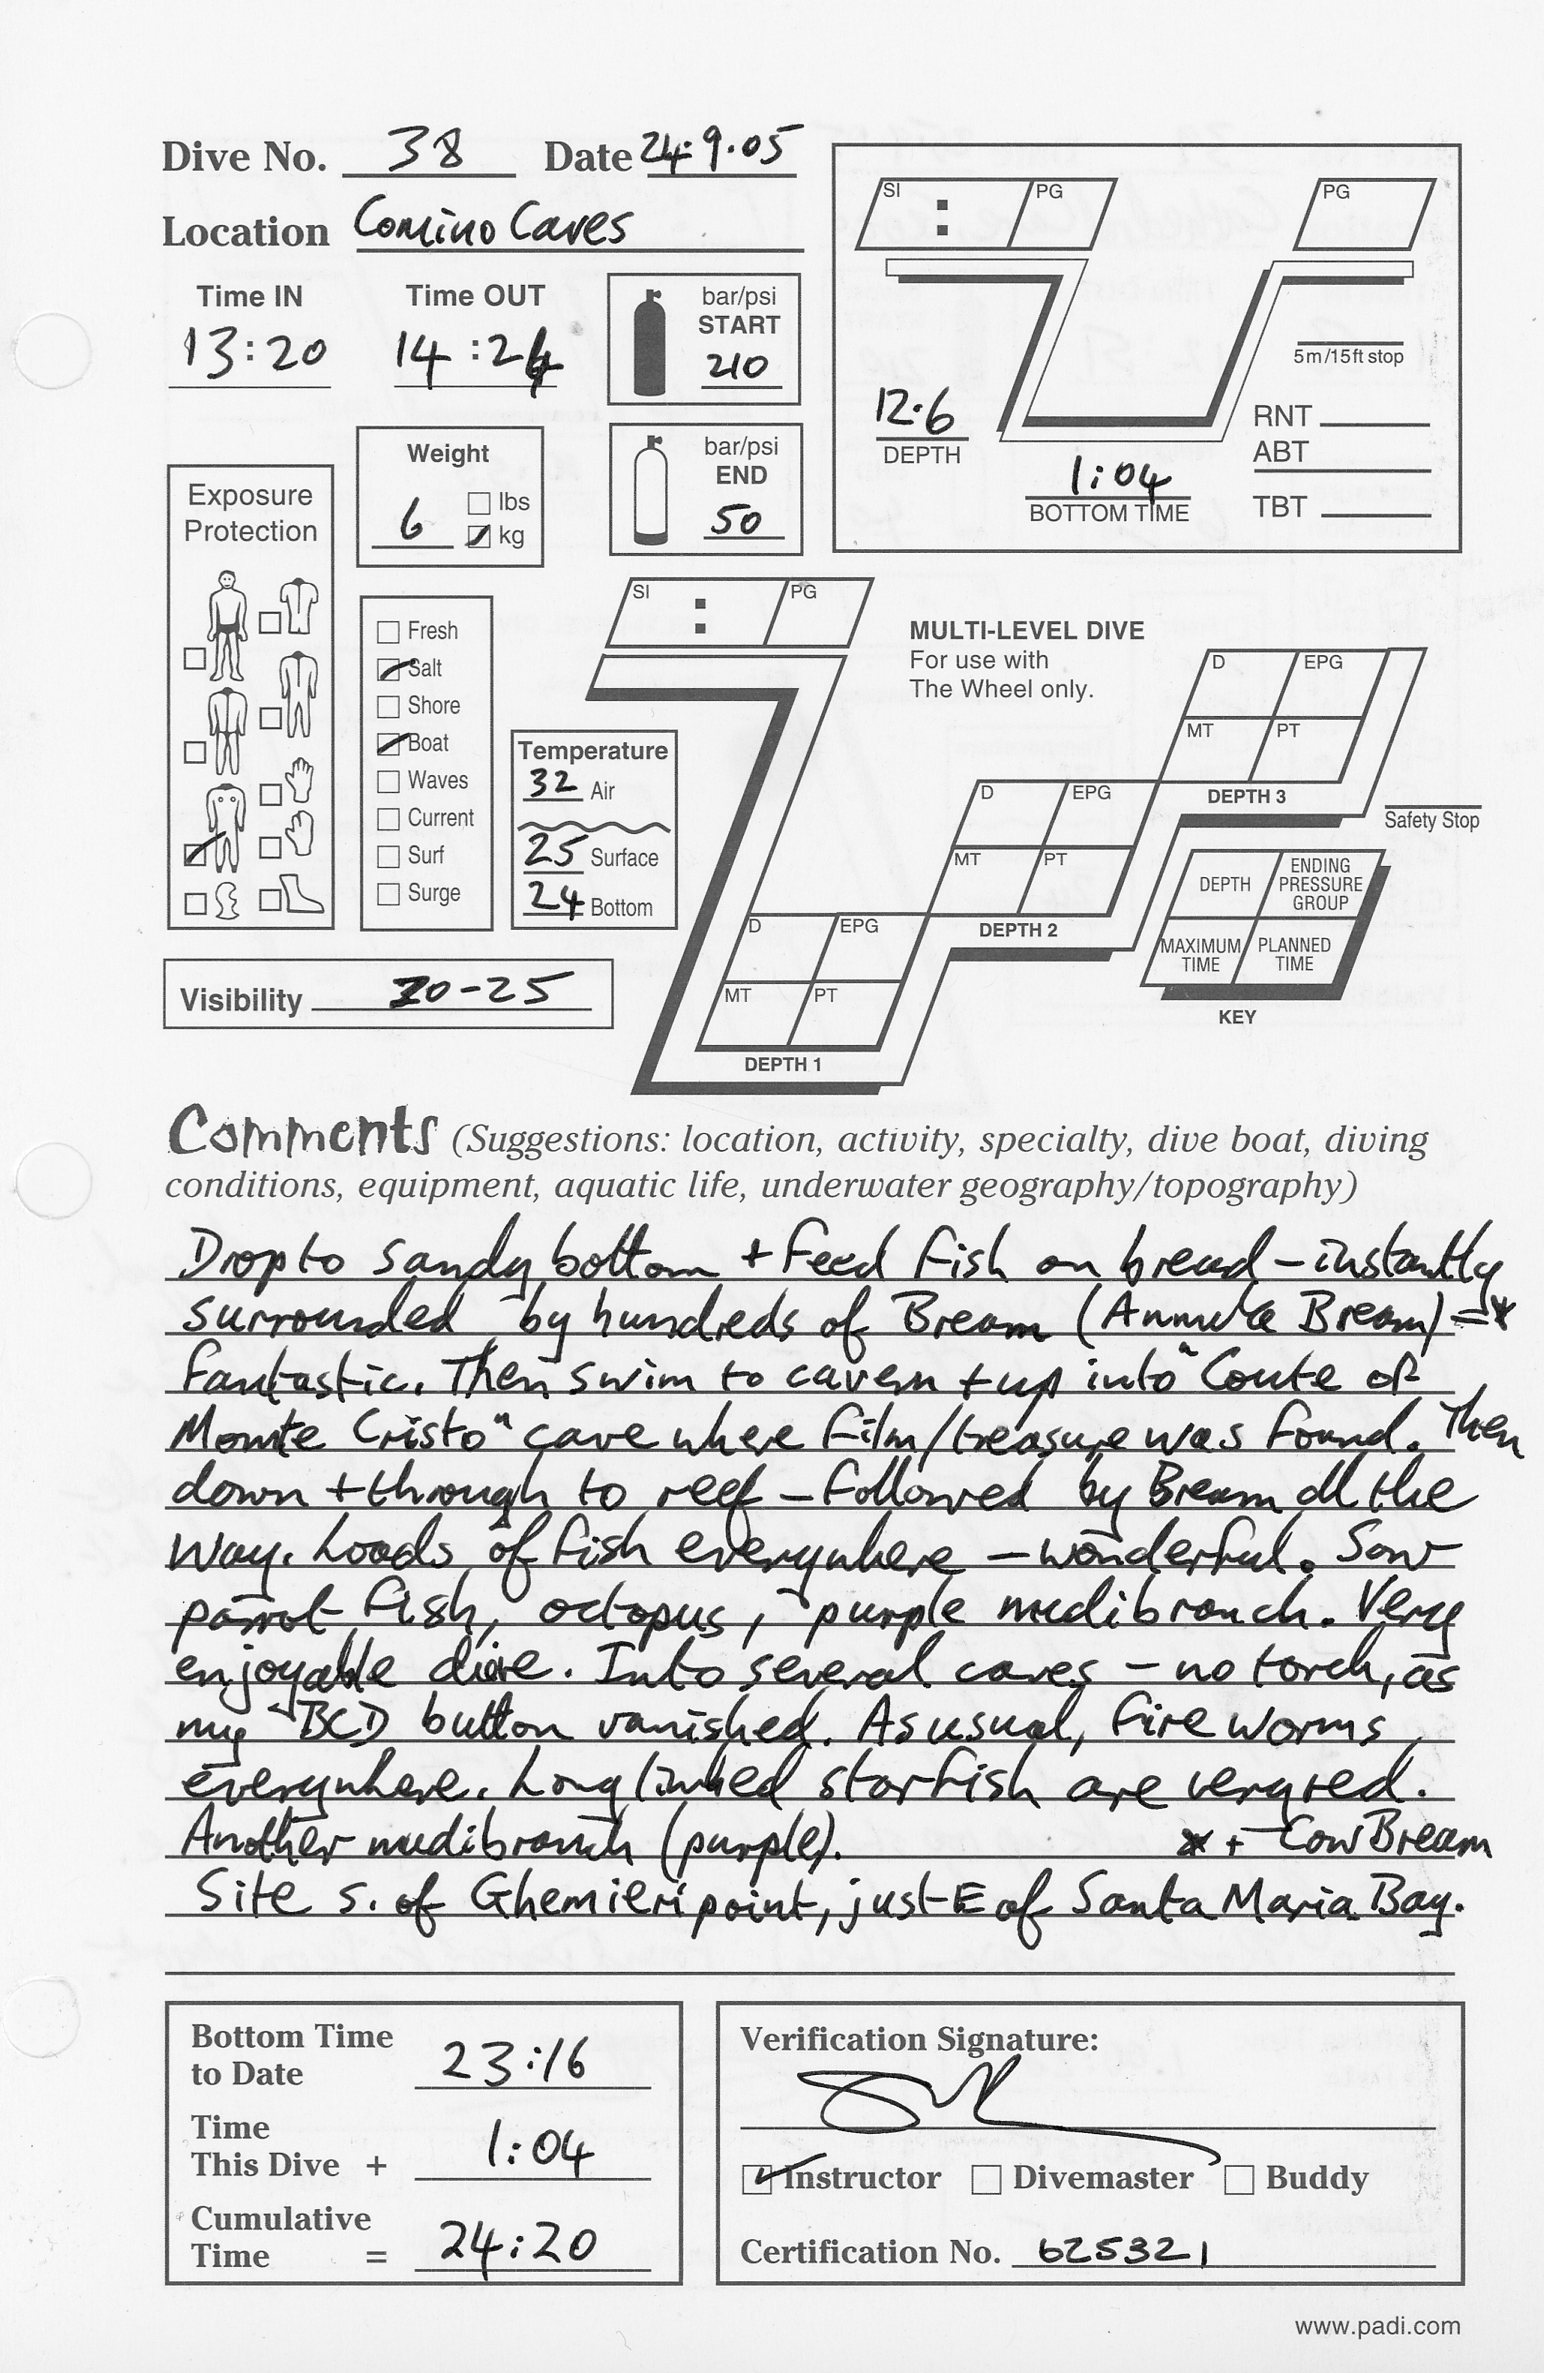 Dive No. 38 Date 24.9.05
Location Comino Caves
Time IN Time OUT
13:20 14:24
bar/psi
START
210
bar/psi
END
50
Weight
6 lbs
kg
Exposure
Protection
Fresh
Salt
Shore
Boat
Waves
Current
Surf
Surge
Temperature
32 Air
25 Surface
24 Bottom
Visibility 20-25
SI : PG PG
5m/15ft stop
12.6
DEPTH
1:04
BOTTOM TIME
RNT
ABT
TBT
SI : PG
MULTI-LEVEL DIVE
For use with
The Wheel only.
D EPG
MT PT
DEPTH 3
D EPG
MT PT
DEPTH 2
D EPG
MT PT
DEPTH 1
Safety Stop
DEPTH ENDING PRESSURE GROUP
MAXIMUM TIME PLANNED TIME
KEY
Comments (Suggestions: location, activity, specialty, dive boat, diving
conditions, equipment, aquatic life, underwater geography/topography)
Drop to sandy bottom + feed fish on bread – instantly
surrounded by hundreds of Bream (Bream) – *
fantastic. Then swim to cavern + up into "Coute of
Monte Cristo" cave where film/treasure was found. Then
down + through to reef – followed by Bream all the
way. Loads of fish everywhere – wonderful. Saw
parrot fish, octopus, purple nudibranch. Very
enjoyable dive. Into several caves – no torch, as
my BCD button vanished. As usual, fire worms
everywhere. Long limbed starfish are very red.
Another nudibranch (purple). * + Cow Bream
Site S. of Ghemieri point, just E of Santa Maria Bay.
Bottom Time
to Date 23:16
Time
This Dive + 1:04
Cumulative
Time = 24:20
Verification Signature:
Instructor Divemaster Buddy
Certification No. 625321
www.padi.com